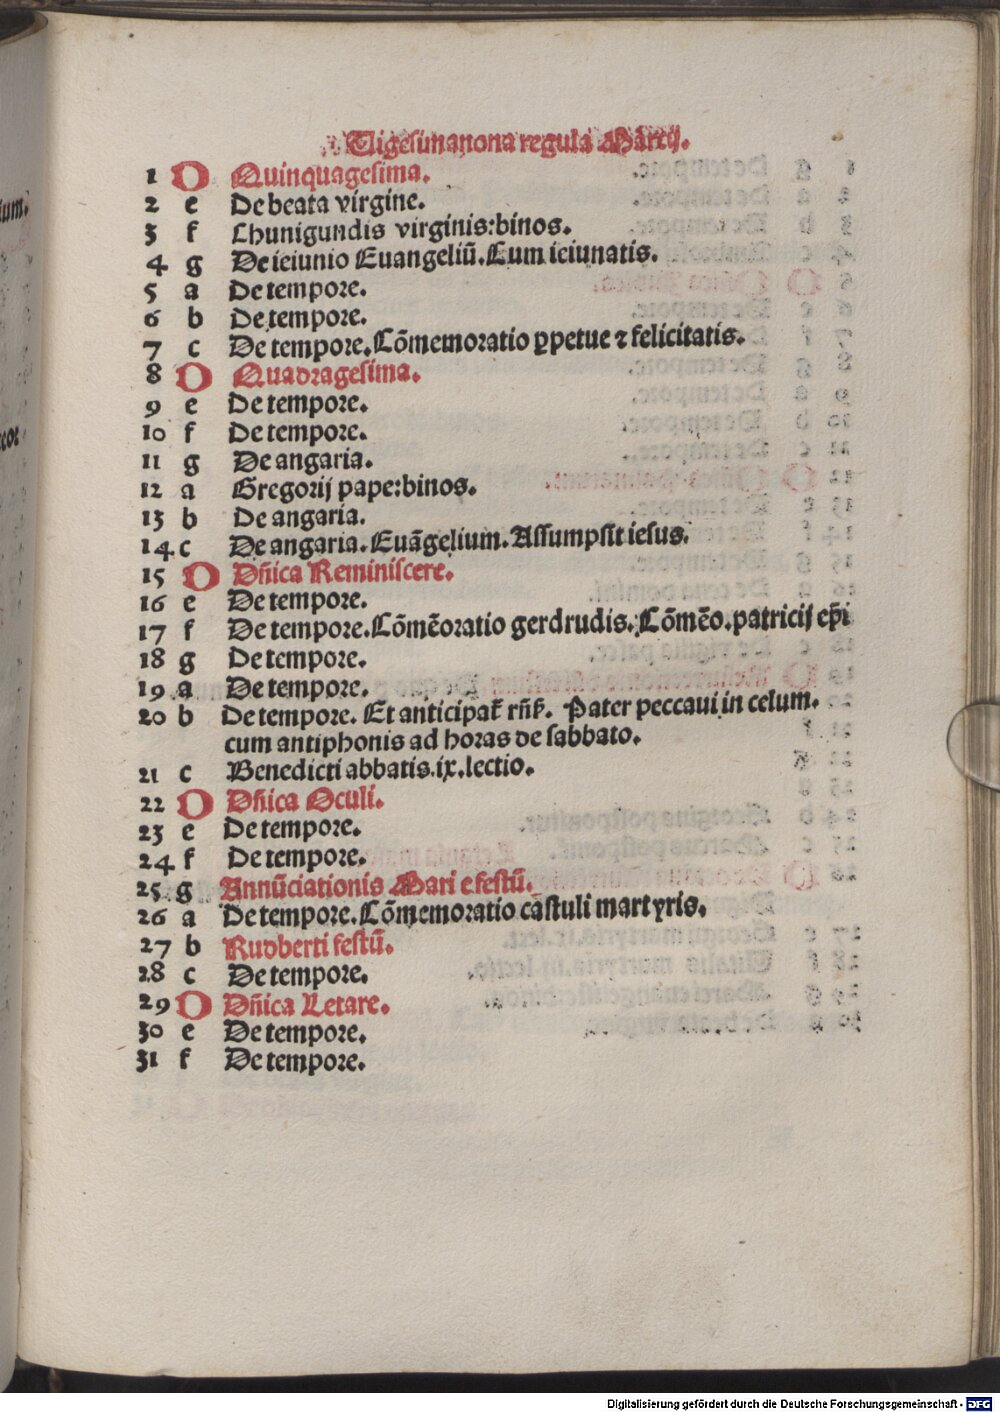 Vigesimanona regula Martij.
1 D Quinquagesima.
2 e De beata virgine.
3 f Chunigundis virginis:binos.
4 g De ieiunio Euangeliū. Cum ieiunatis.
5 a De tempore.
6 b De tempore.
7 c De tempore. Cōmemoratio ꝑpetue ⁊ felicitatis.
8 D Quadragesima.
9 e De tempore.
10 f De tempore.
11 g De angaria.
12 a Gregorij pape:binos.
13 b De angaria.
14 c De angaria. Euāgelium. Assumpsit iesus.
15 D Dñica Reminiscere.
16 e De tempore.
17 f De tempore. Cōmēoratio gerdrudis. Cōmēo. patricij ep̄i
18 g De tempore.
19 a De tempore.
20 b De tempore. Et anticipat̄ rñß. Pater peccaui in celum.
cum antiphonis ad horas de sabbato.
21 c Benedicti abbatis.ix.lectio.
22 D Dñica Oculi.
23 e De tempore.
24 f De tempore.
25 g Annūciationis Mari e festū.
26 a De tempore. Cōmemoratio castuli martyris.
27 b Rudberti festū.
28 c De tempore.
29 D Dñica Letare.
30 e De tempore.
31 f De tempore.
Digitalisierung gefördert durch die Deutsche Forschungsgemeinschaft - DFG